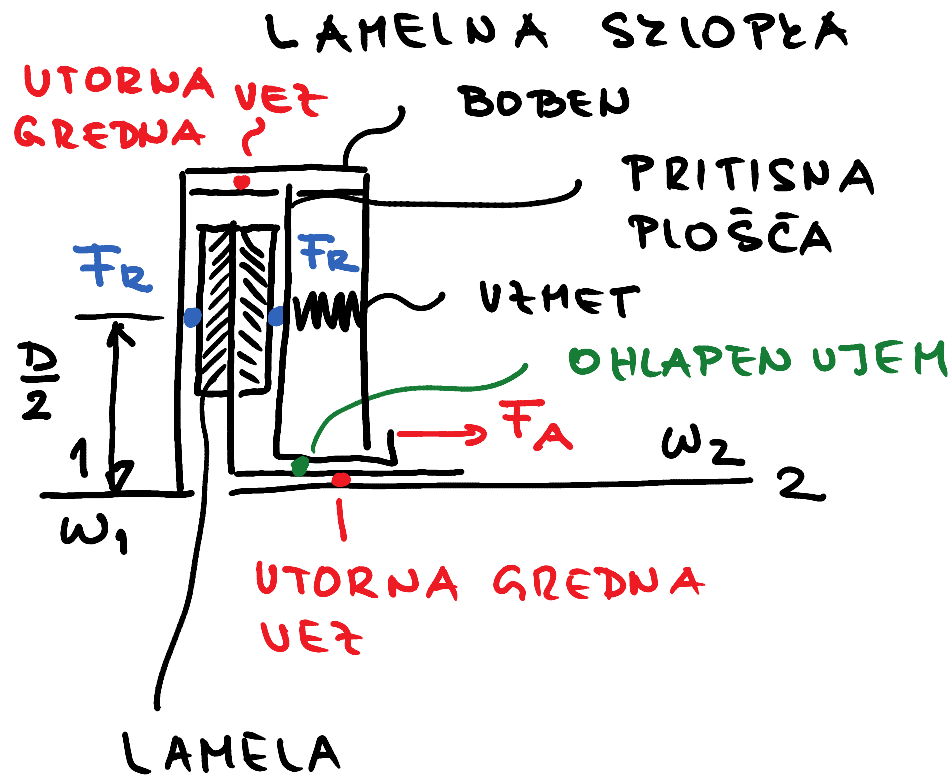 LAMELNA SKLOPKA
UTORNA
GREDNA VEZ
BOBEN
PRITISNA
PLOŠČA
F_R
F_R
VZMET
D/2
OHLAPEN UJEM
F_A
1
ω_1
ω_2
2
UTORNA GREDNA
VEZ
LAMELA